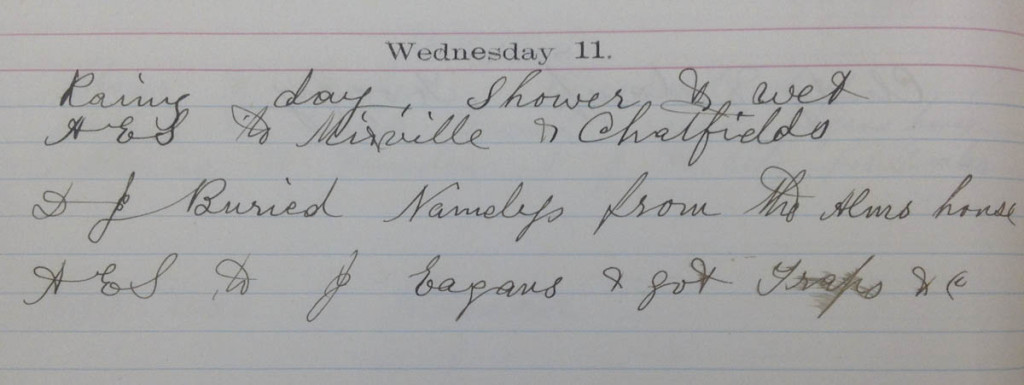 Wednesday 11.
Rainy day, Shower & wet
A E S to Mixville & Chatfields
D J Buried Namelys from the Alms house
A E S to J Eagans & got Traps & c